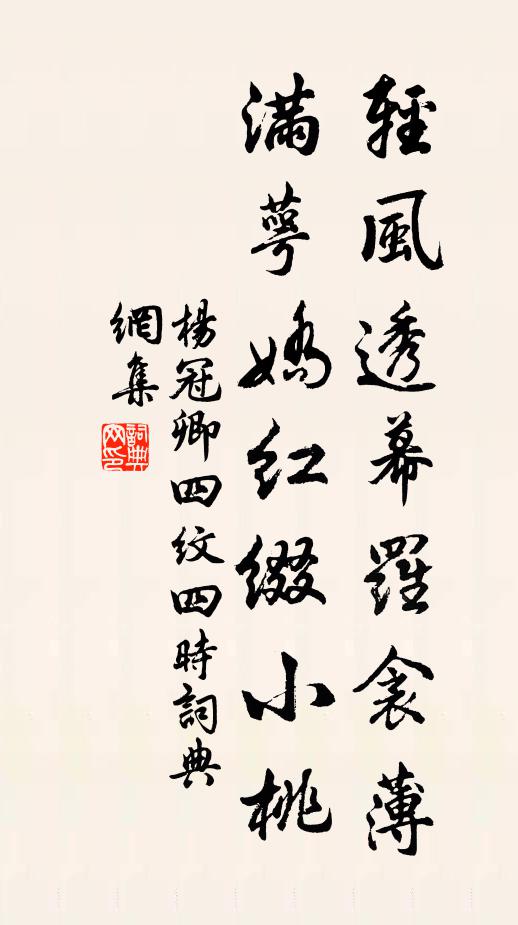 輕風透幕羅衾薄
滿萼嬌紅綴小桃
楊冠卿四紋四時詞典
網集
詞典网印